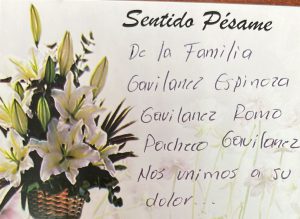 Sentido Pésame
De la Familia
Gavilanez Espinoza
Gavilanez Romo
Pacheco Gavilanez
Nos unimos a su
dolor...